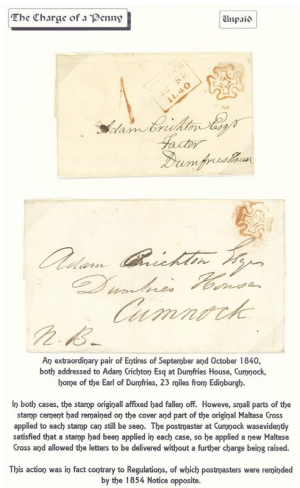 The Charge of a Penny
Unpaid
SE
1840
1
Adam Crichton Esqr
Factor
Dumfries House
Adam Crichton Esqr
Dumfries House
Cumnock
N.B-
An extraordinary pair of Entires of September and October 1840,
both addressed to Adam Crichton Esq at Dumfries House, Cumnock,
home of the Earl of Dumfries, 23 miles from Edinburgh.
In both cases, the stamp originall affixed had fallen off. However, small parts of the
stamp cement had remained on the cover and part of the original Maltese Cross
applied to each stamp can still be seen. The postmaster at Cumnock wasevidently
satisfied that a stamp had been applied in each case, so he applied a new Maltese
Cross and allowed the letters to be delivered without a further charge being raised.
This action was in fact contrary to Regulations, of which postmasters were reminded
by the 1854 Notice opposite.